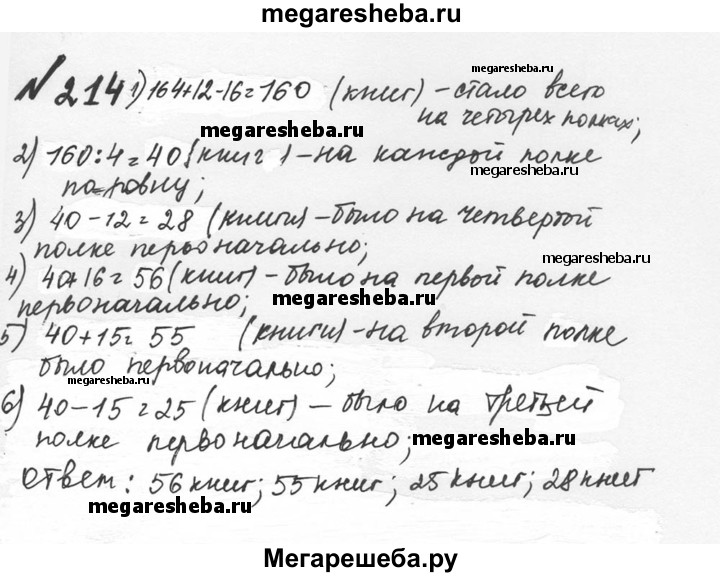 megaresheba.ru
№ 214 1) 164+12-16=160 (книг) - стало всего
megaresheba.ru
на четырех полках;
megaresheba.ru
2) 160:4=40 (книг) - на каждой полке
megaresheba.ru
поровну;
3) 40-12=28 (книги) - было на четвертой
полке первоначально;
megaresheba.ru
4) 40+16=56 (книг) - было на первой полке
первоначально;
megaresheba.ru
5) 40+15= 55 (книги) - на второй полке
было первоначально;
megaresheba.ru
6) 40-15=25 (книг) - было на третьей
полке первоначально;
megaresheba.ru
Ответ: 56 книг; 55 книг; 25 книг; 28 книг
megaresheba.ru
Мегарешеба.ру